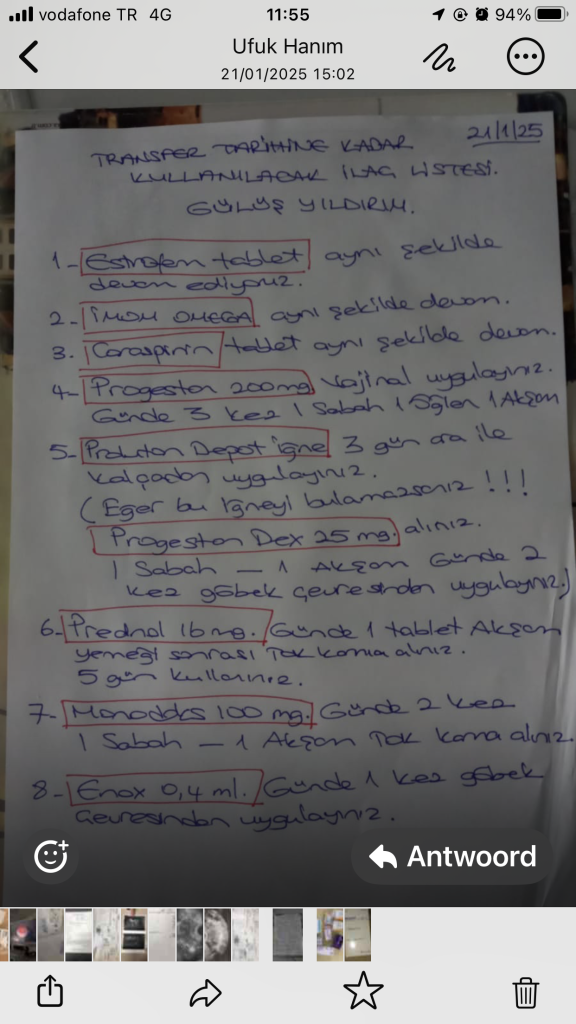 vodafone TR 4G
11:55
94%
Ufuk Hanım
21/01/2025 15:02
21/1/25
TRANSFER TARİHİNE KADAR
KULLANILACAK İLAÇ LİSTESİ.
GÜLÜŞ YILDIRIM.
1- Estrofem tablet aynı şekilde
devam ediyoruz.
2- İMOM OMEGA aynı şekilde devam.
3. Coraspirin tablet aynı şekilde devam.
4- Progestan 200mg Vajinal uygulayınız.
Günde 3 kez 1 Sabah 1 Öğlen 1 Akşam
5- Proluton Depot iğne 3 gün ara ile
kalçadan uygulayınız.
(Eğer bu iğneyi bulamazsanız !!!
Progestan Dex 25 mg. alınız.
1 Sabah - 1 Akşam Günde 2
kez göbek çevresinden uygulayınız.)
6- Prednol 16 mg. Günde 1 tablet Akşam
yemeği sonrası Tok karna alınız.
5 gün kullanınız.
7- Monodoks 100 mg. Günde 2 kez
1 Sabah - 1 Akşam Tok karna alınız.
8- Enox 0,4 ml. Günde 1 kez göbek
çevresinden uygulayınız.
Antwoord